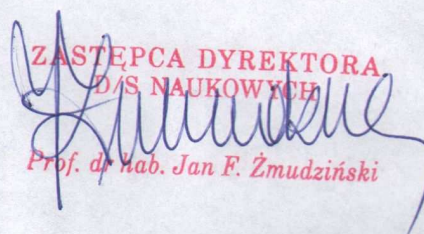 ZASTĘPCA DYREKTORA
D/S NAUKOWYCH
Prof. dr hab. Jan F. Żmudziński